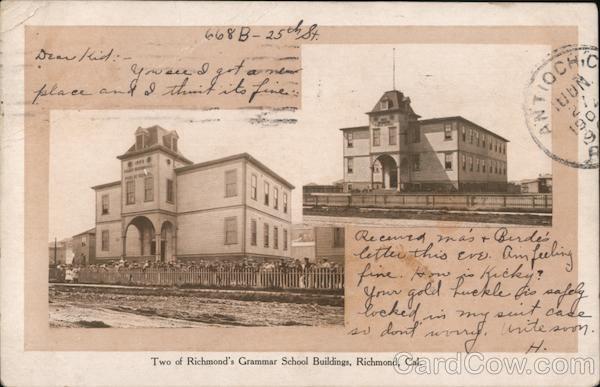 668B - 25th St.
Dear Kid:-
You see I got a new
place and I think its fine.
ANTIOCH, C
JUN
Received ma's & Birdie's
letter this eve. Am feeling
fine. How is Kicky?
Your gold buckle is safely
locked in my suit case
so don't worry. Write soon.
H.
Two of Richmond's Grammar School Buildings, Richmond, Cal.
CardCow.com